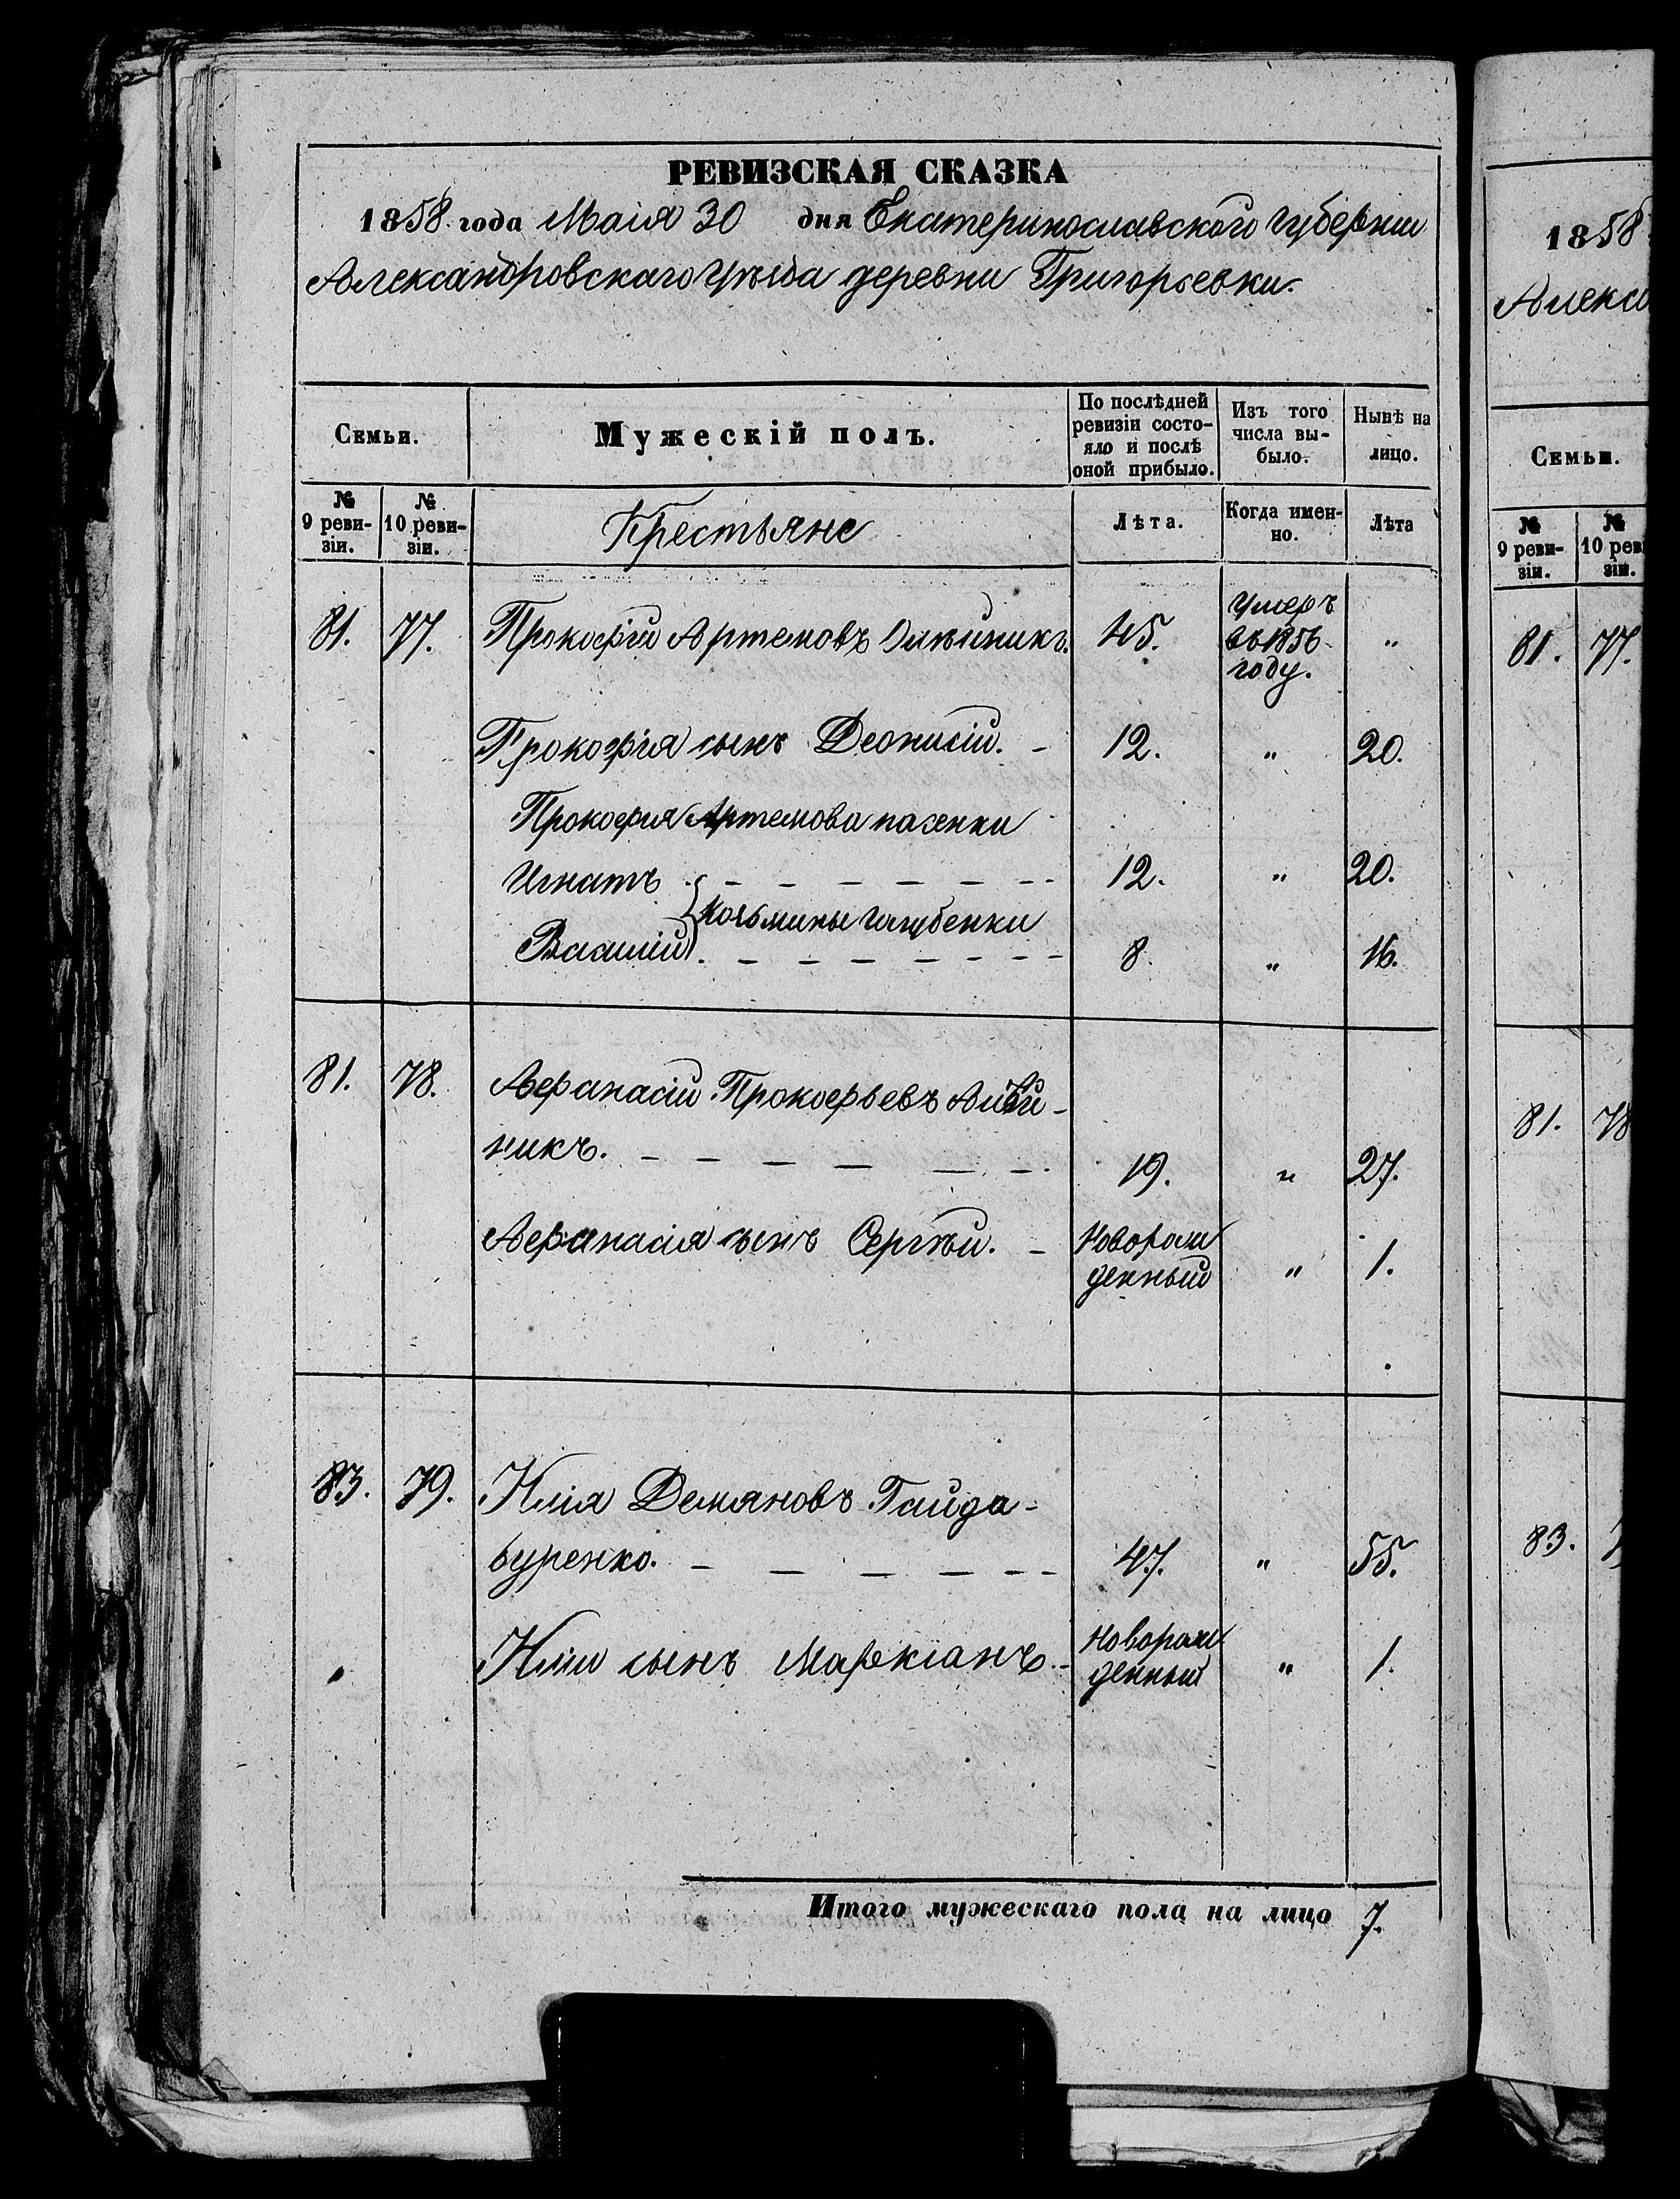 РЕВИЗСКАЯ СКАЗКА
1858 года Маія 30 дня Екатеринославского губернии
Александровскаго уѣзда деревни Григорьевки.
Семьи.
Мужескій полъ.
По послѣдней ревизіи состояло и послѣ оной прибыло.
Изъ того числа выбыло.
Нынѣ на лицо.
№ 9 ревизіи.
№ 10 ревизіи.
Крестьяне
Лѣта.
Когда именно.
Лѣта
81. 77. Прокофій Артемовъ Олѣйникъ. 45. Умеръ въ 1856 году. "
Прокофія сынъ Деонисій. - 12. " 20.
Прокофия Артемова пасенки
Игнатъ - - - - - - - 12. " 20.
Козьмины Голубенки
Василій - - - - - - - 8 " 16.
81. 78. Афанасій Прокофьевъ
никъ. - - - - - - 19. " 27.
Афанасія сынъ Сергѣй. - Новорожденный " 1.
83. 79. Илія Демяновъ Гайда-
буренко. - - - - - - 47. " 55.
Иліи сынъ Маркіанъ. - Новорожденный " 1.
Итого мужескаго пола на лицо 7.
1858
Алекса
Семьи.
№ 9 ревизіи.
№ 10 реви
зіи.
81. 77.
81. 78
83.